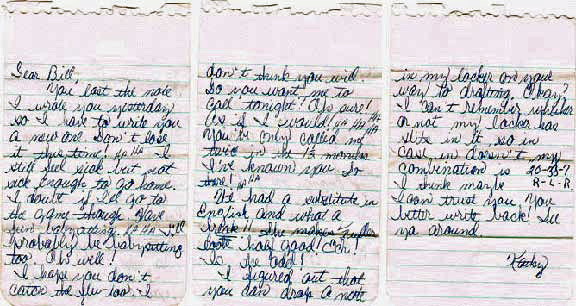 Dear Bill,
You lost the note
I wrote you yesterday
so I have to write you
a new one. Don't lose
it this time! ha ha I
still feel sick but not
sick enough to go home.
I doubt if I'd go to
the game though. Have
fun babysitting ha ha I'll
probably be babysitting
too. Oh well!
I hope you don't
catch the flu too. I
don't think you will.
So you want me to
call tonight! Oh sure!
As if I would! ha ha ha
You've only called me
twice in the 1½ months
I've known you. So
there! ha ha
We had a substitute in
English and what a
She makes
look good! Can!
Is he bad!
I figured out that
you can drop a note
in my locker on your
way to drafting. Okay?
I can't remember whether
or not my locker has
slits in it so in
case it doesn't my
combination is 20-35-7
I think maybe R-L-R
I can trust you. You
better write back! See
ya around.